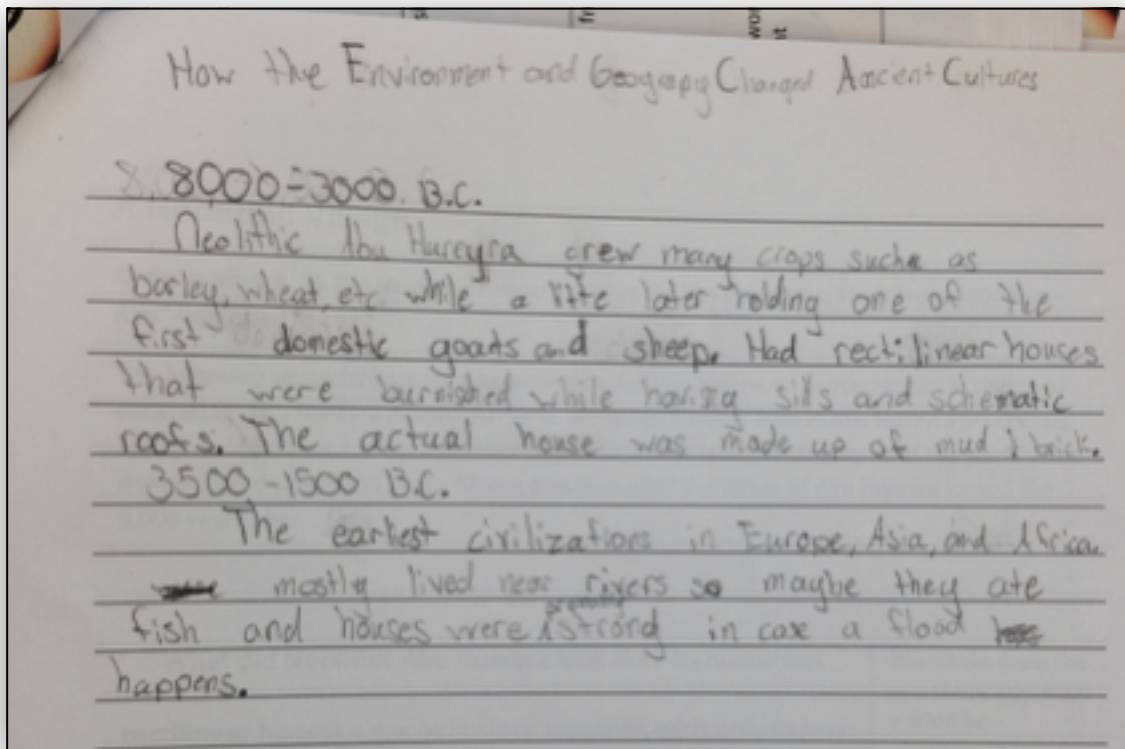 How the Environment and Geograpy Changed Ancient Cultures
8000-3000 B.C.
Neolithic Abu Hureyra grew many crops such as
barley, wheat, etc while a litte later holding one of the
first domestic goats and sheep. Had rectilinear houses
that were burnished while having sills and schematic
roofs. The actual house was made up of mud brick.
3500-1500 B.C.
The earliest civilizations in Europe, Asia, and Africa
mostly lived near rivers so maybe they ate
fish and houses were strong in case a flood
happens.